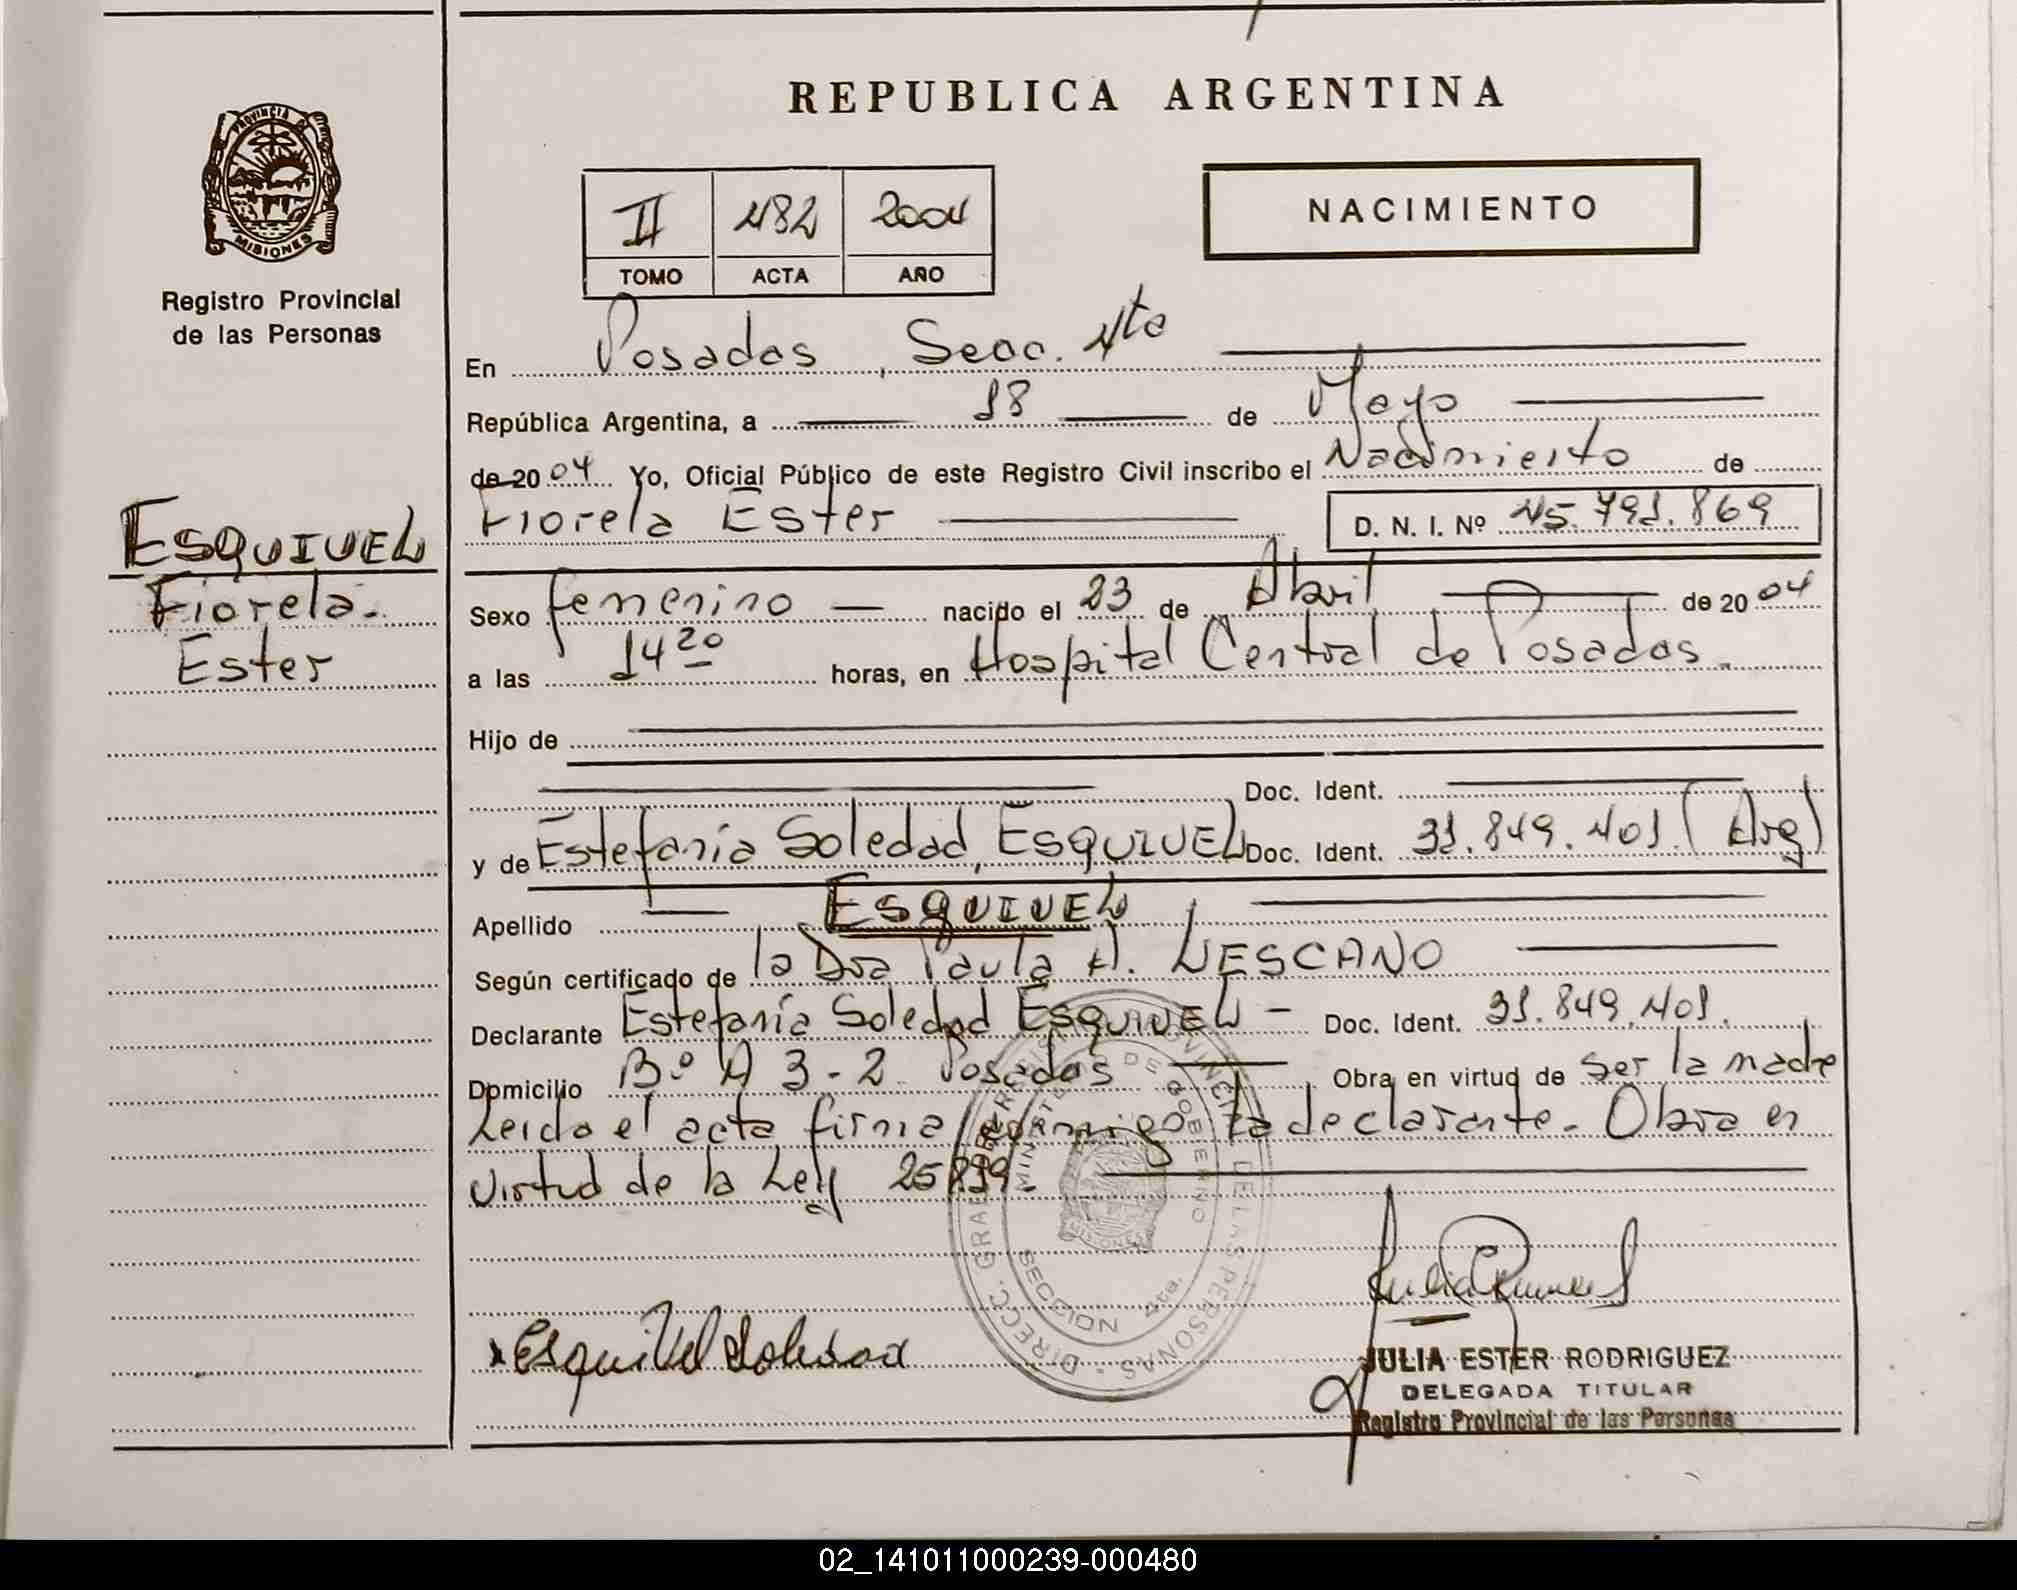 REPUBLICA ARGENTINA
PROVINCIA D MISIONES
Registro Provincial
de las Personas
II 482 2004
TOMO ACTA AÑO
NACIMIENTO
En Posadas, Secc. 4ta
República Argentina, a 18 de Mayo
de 2004 Yo, Oficial Público de este Registro Civil inscribo el Nacimiento de
Fiorela Ester D. N. I. Nº 45.791.869
ESQUIVEL
Fiorela
Ester
Sexo femenino nacido el 23 de Abril de 2004
a las 14 20 horas, en Hospital Central de Posadas.
Hijo de
Doc. Ident.
y de Estefanía Soledad, ESQUIVEL Doc. Ident. 31.849.401 (Arg)
Apellido ESQUIVEL
Según certificado de la Dra Paula A. LESCANO
Declarante Estefanía Soledad ESQUIVEL - Doc. Ident. 31.849.401.
Domicilio Bº A 3-2 Posadas Obra en virtud de ser la madre
Leída el acta firma conmigo la declarante. Obra en
virtud de la Ley 25819.
DIRECC. GRAL. DEL REGISTRO PROVINCIAL DE LAS PERSONAS
MINISTERIO DE GOBIERNO
MISIONES
SECCION 4ta.
Esquivel Soledad
JULIA ESTER RODRIGUEZ
DELEGADA TITULAR
Registro Provincial de las Personas
02_141011000239-000480